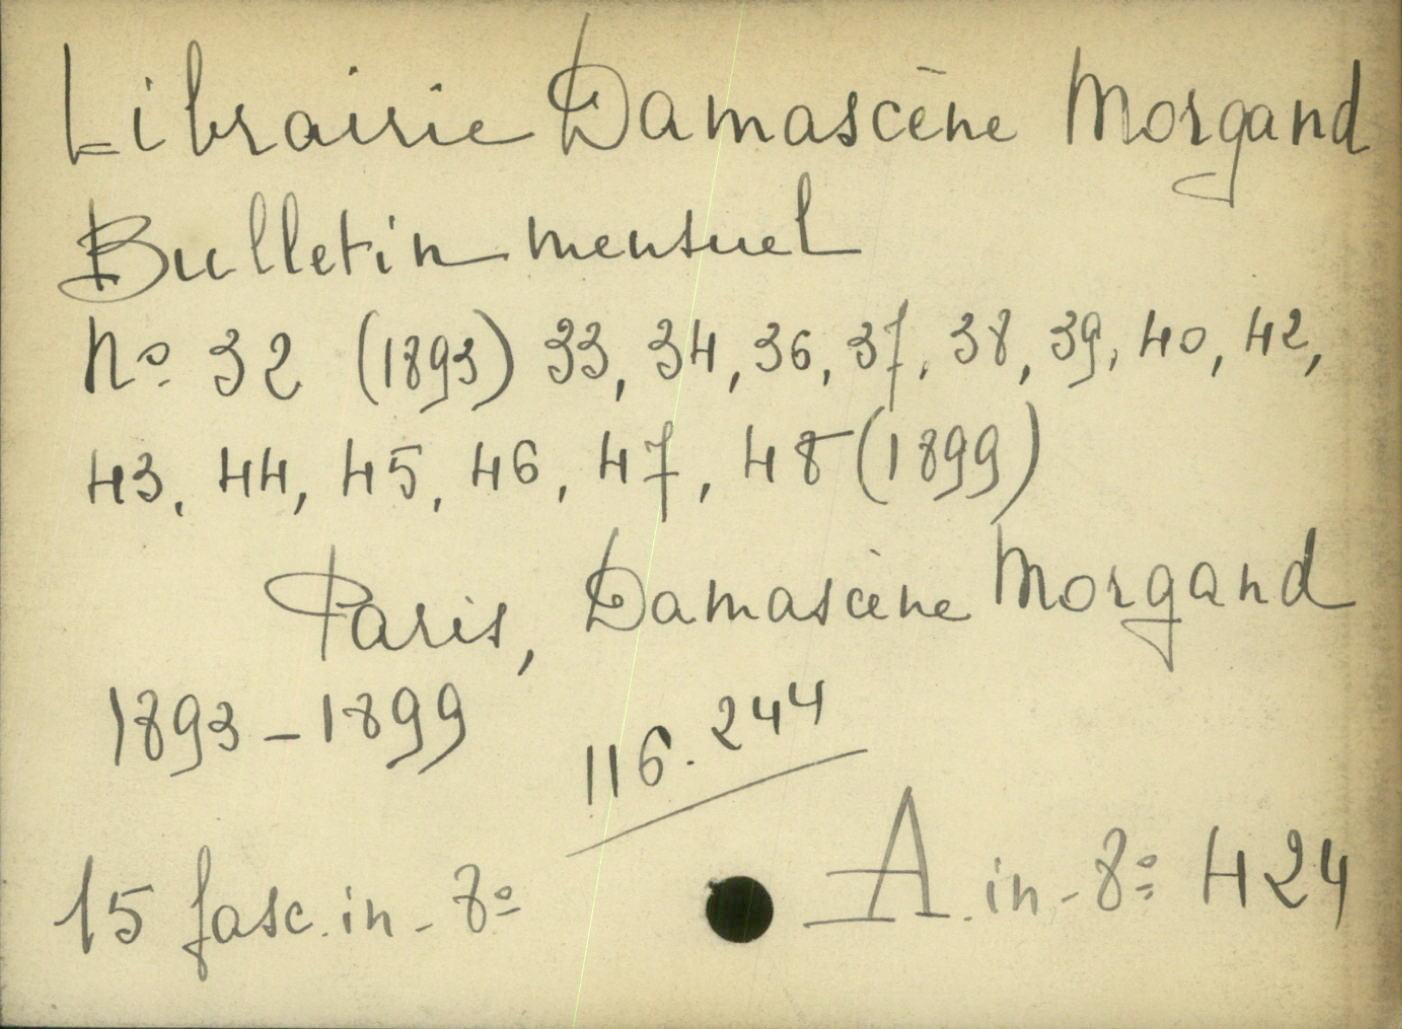 Librairie Damascène Morgand
Bulletin mensuel
Nº 32 (1893) 33, 34, 36, 37, 38, 39, 40, 42,
43, 44, 45, 46, 47, 48 (1899)
Paris, Damascène Morgand
1893-1899
116.244
15 fasc. in-8º
A. in-8º 424